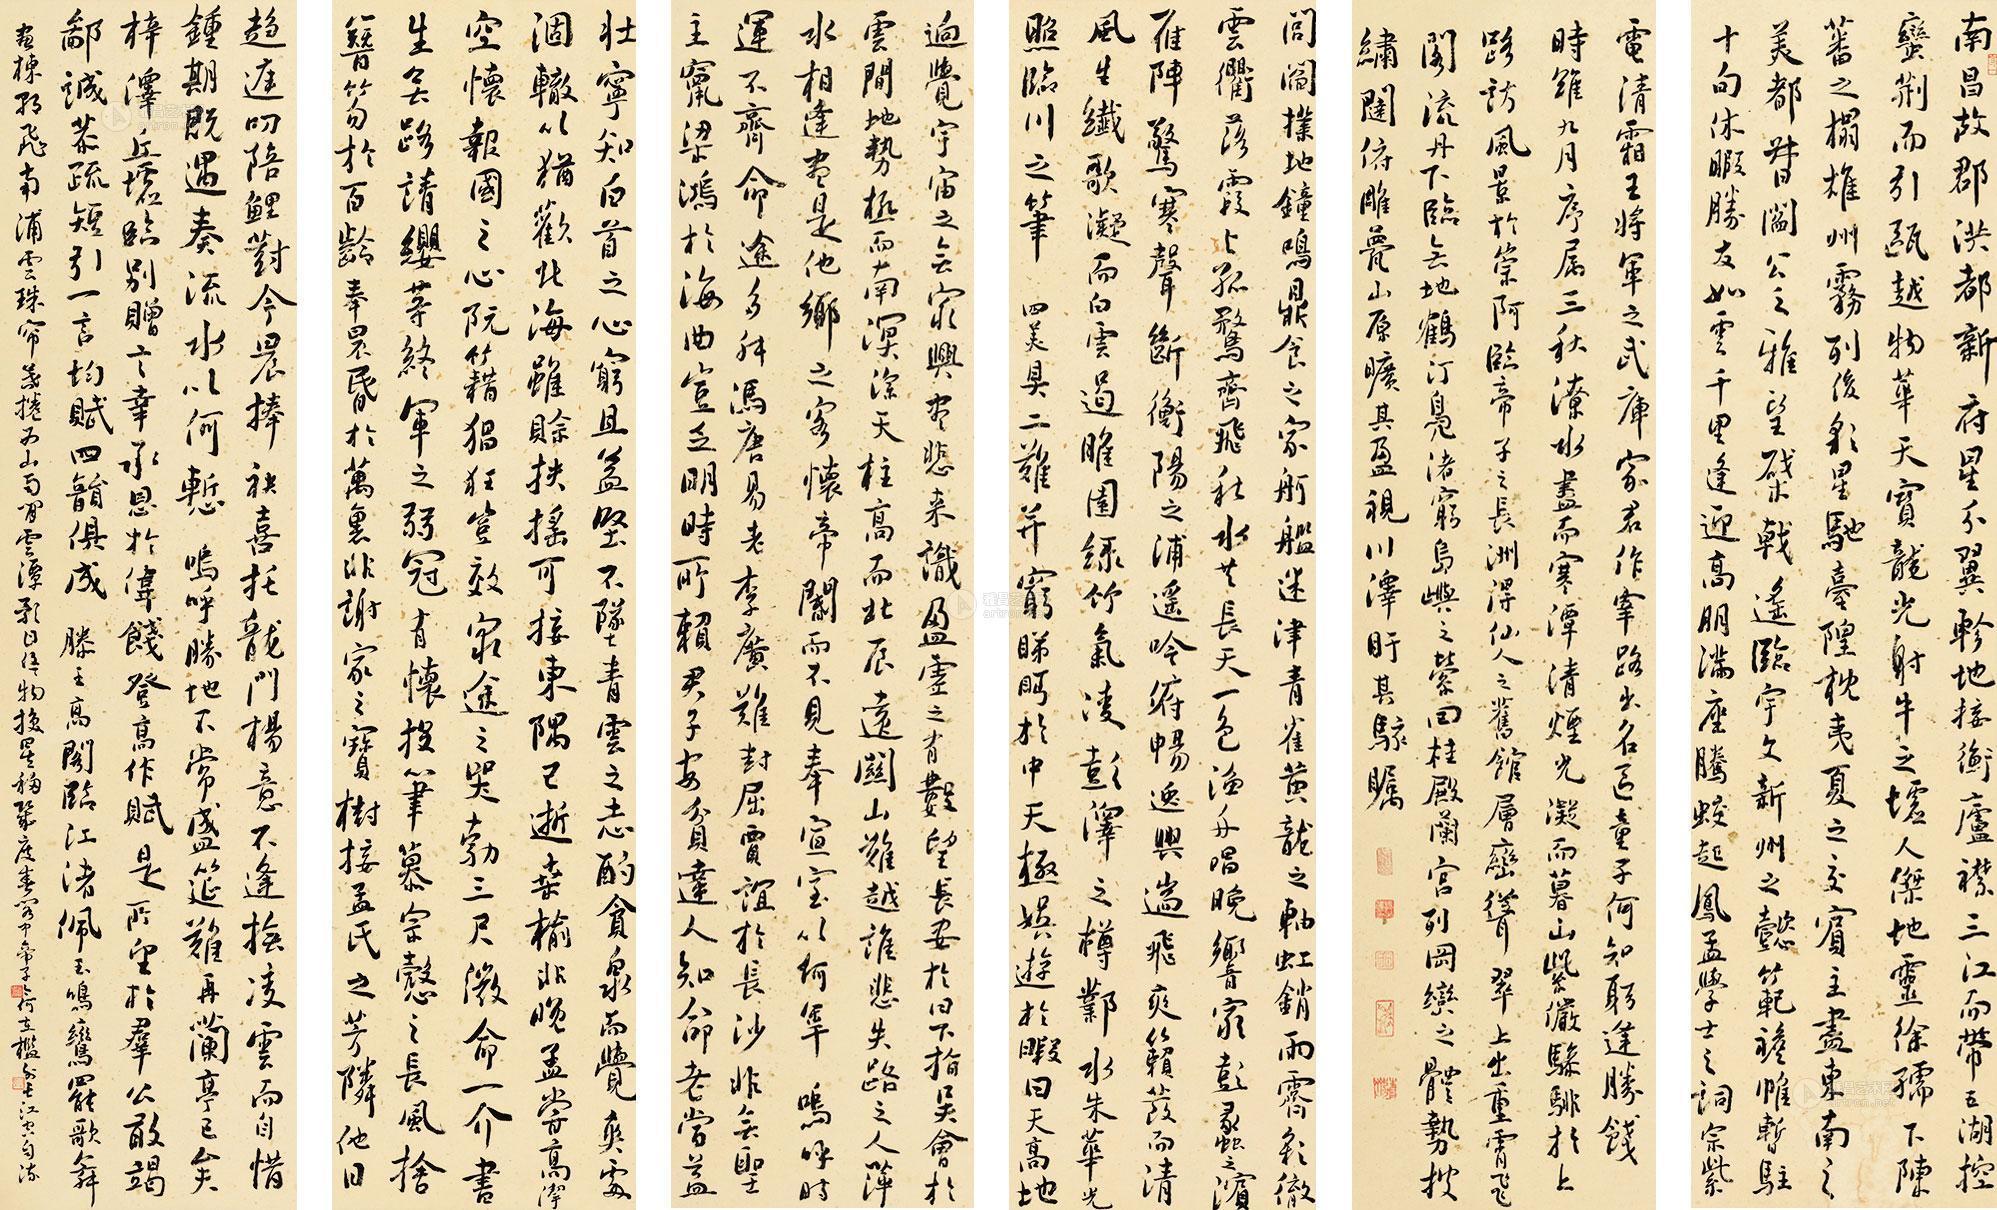 南昌故郡洪都新府星分翼軫地接衡廬襟三江而帶五湖控
蠻荊而引甌越物華天寶龍光射牛之墟人傑地靈徐孺下陳
蕃之榻雄州霧列俊彩星馳臺隍枕夷夏之交賓主盡東南之
美都督閻公之雅望棨戟遙臨宇文新州之懿範襜帷暫駐
十旬休暇勝友如雲千里逢迎高朋滿座騰蛟起鳳孟學士之詞宗紫
電清霜王將軍之武庫家君作宰路出名區童子何知躬逢勝餞
時維九月序屬三秋潦水盡而寒潭清煙光凝而暮山紫儼驂騑於上
路訪風景於崇阿臨帝子之長洲得仙人之舊館層巒聳翠上出重霄飛
閣流丹下臨無地鶴汀鳧渚窮島嶼之縈回桂殿蘭宮列岡巒之體勢披
繡闥俯雕甍山原曠其盈視川澤盱其駭矚
閭閻撲地鐘鳴鼎食之家舸艦迷津青雀黃龍之軸虹銷雨霽彩徹
雲衢落霞與孤鶩齊飛秋水共長天一色漁舟唱晚響窮彭蠡之濱
雁陣驚寒聲斷衡陽之浦遙吟俯暢逸興遄飛爽籟發而清
風生纖歌凝而白雲遏睢園綠竹氣凌彭澤之樽鄴水朱華光
照臨川之筆 四美具二難并窮睇眄於中天極娛遊於暇日天高地
迥覺宇宙之無窮興盡悲來識盈虛之有數望長安於日下指吳會於
雲間地勢極而南溟深天柱高而北辰遠關山難越誰悲失路之人萍
水相逢盡是他鄉之客懷帝閽而不見奉宣室以何年 嗚呼時
運不齊命途多舛馮唐易老李廣難封屈賈誼於長沙非無聖
主竄梁鴻於海曲豈乏明時所賴君子安貧達人知命老當益
壯寧知白首之心窮且益堅不墜青雲之志酌貪泉而覺爽處
涸轍以猶歡北海雖賒扶搖可接東隅已逝桑榆非晚孟嘗高潔
空懷報國之心阮籍猖狂豈效窮途之哭勃三尺微命一介書
生無路請纓等終軍之弱冠有懷投筆慕宗愨之長風捨
簪笏於百齡奉晨昏於萬里非謝家之寶樹接孟氏之芳鄰他日
趨庭叨陪鯉對今晨捧袂喜托龍門楊意不逢撫凌雲而自惜
鍾期既遇奏流水以何慚 嗚呼勝地不常盛筵難再蘭亭已矣
梓澤丘墟臨別贈言幸承恩於偉餞登高作賦是所望於群公敢竭
鄙誠恭疏短引一言均賦四韻俱成 滕王高閣臨江渚佩玉鳴鸞罷歌舞
畫棟朝飛南浦雲珠簾暮捲西山雨閒雲潭影日悠悠物換星移幾度秋閣中帝子今何在檻外長江空自流